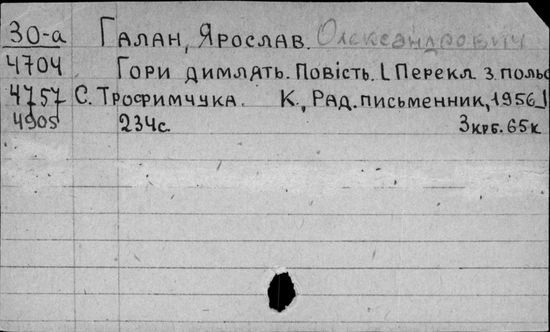 30-а Галан, Ярослав. Олександрович
4704 Гори димлять. Повість. [Перекл. з польс.
4757 С. Трофимчука. К., Рад. письменник, 1956]
4905 234с. 3крб. 65к